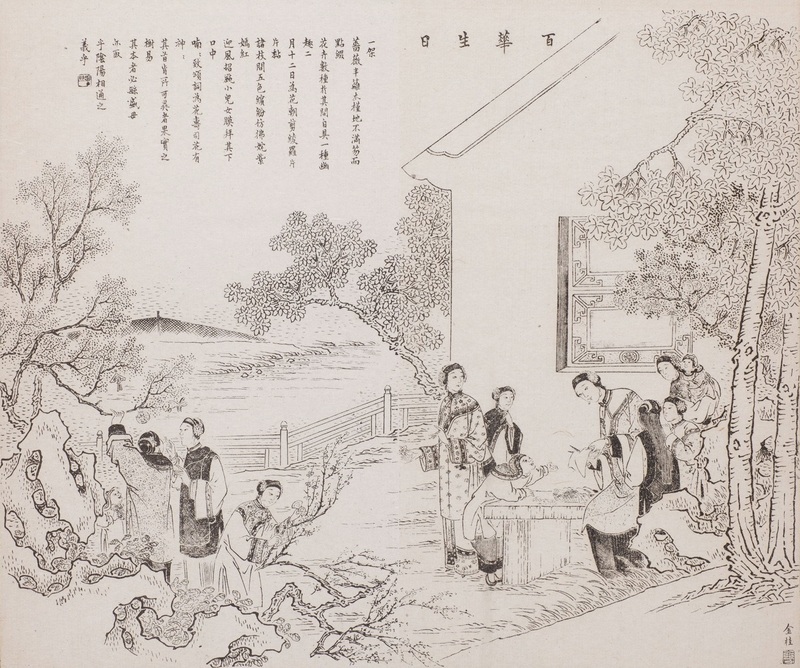 百華生日
一架
薔薇半籬木槿地不滿笏而
點綴
花卉數種於其間自具一種幽
趣二
月十二日為花朝剪綾羅片
片黏
諸枝間五色繽紛彷彿姹紫
嫣紅
迎風招颭小兒女膜拜其下
口中
喃喃致頌詞為花壽司花有
神
其首肯許可 者果實之
樹易
其本者必 盛毋
亦取
乎陰陽相通之
義乎
金桂